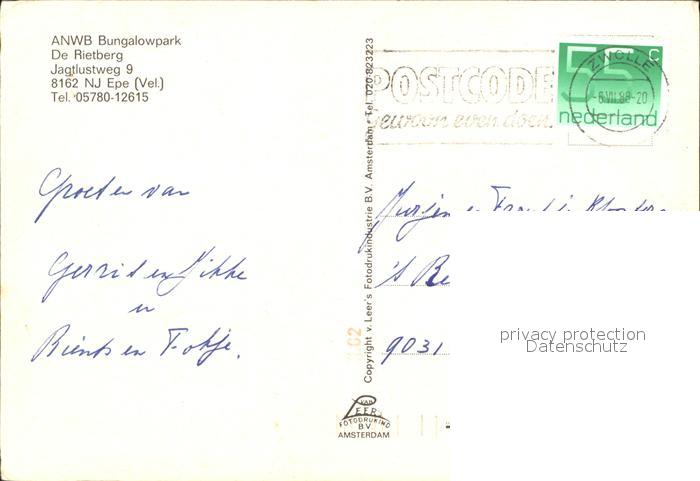 ANWB Bungalowpark
De Rietberg
Jagtlustweg 9
8162 NJ Epe (Vel.)
Tel. 05780-12615
Groeten van
Gerrit en Sikke
en
Rients en Fokje.
Copyright v. Leer's Fotodrukindustrie B.V. Amsterdam • Tel. 020-823223
POSTCODE
Gewoon even doen
ZWOLLE
-6.VII.88-20
55 c
nederland
Jurjen en
's Be
9031
privacy protection
Datenschutz
VAN
LEER
FOTODRUKIND
B.V
AMSTERDAM